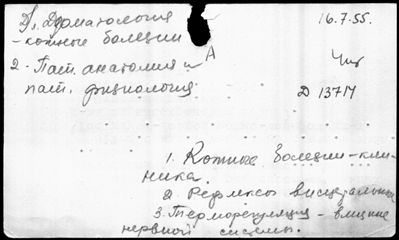 Д, Дерматология
- кожные болезни
16.7.55.
А
2 - Пат. анатомия и
пат. физиология
Чит
Д 1371
1. Кожные болезни - кли-
ника.
2. Рефлексы висцеральные
3. Терморегуляция - влияние
нервной системы.